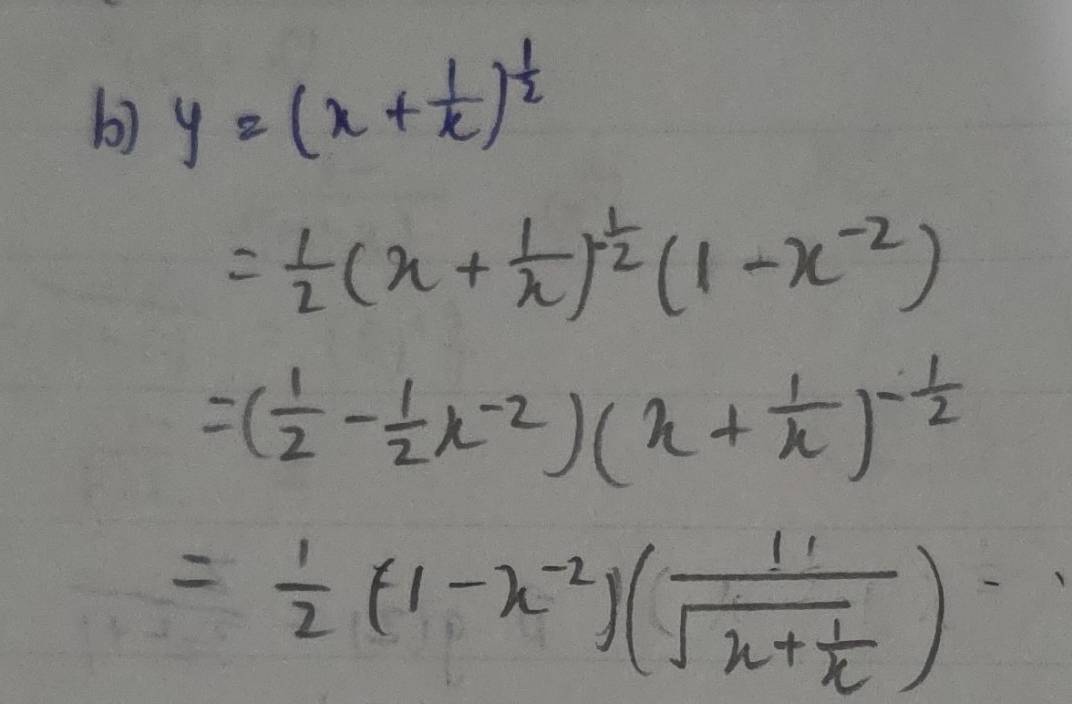 b) y = (x + 1/x)^1/2
= 1/2 (x + 1/x)^-1/2 (1 - x^-2)
= (1/2 - 1/2 x^-2) (x + 1/x)^-1/2
= 1/2 (1 - x^-2) (1/√(x + 1/x))